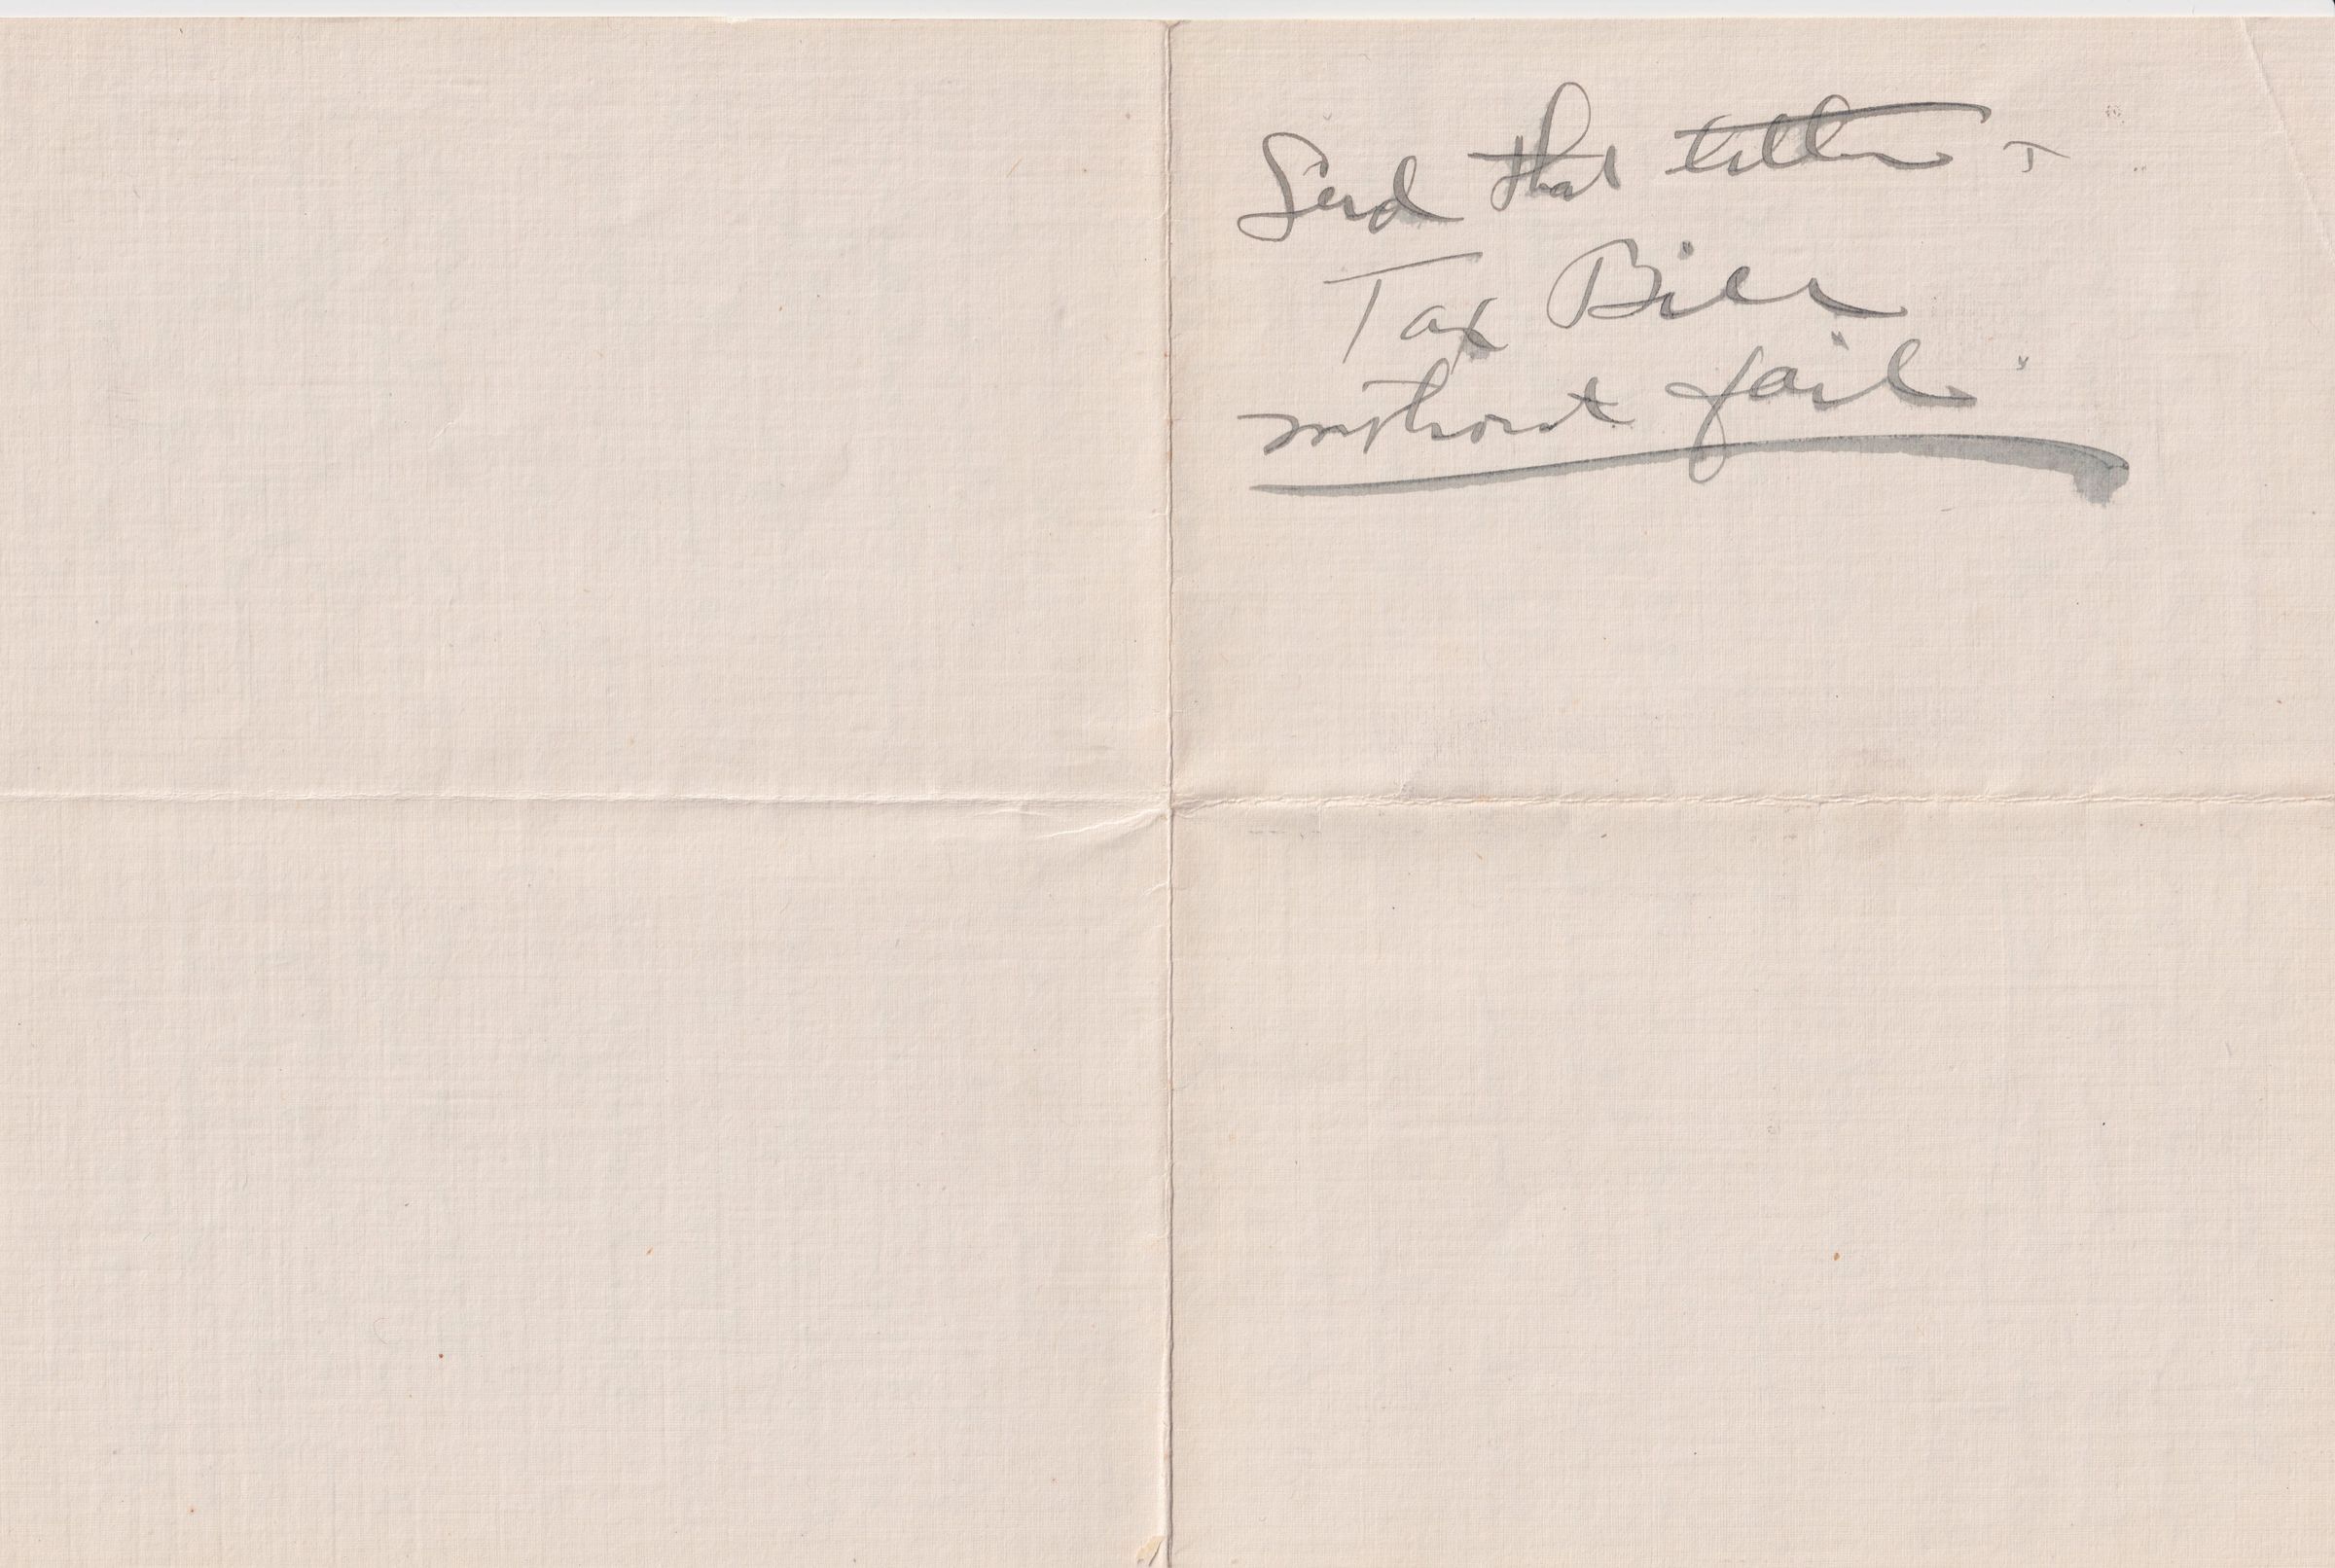 Send that letter +
Tax Bill
without fail